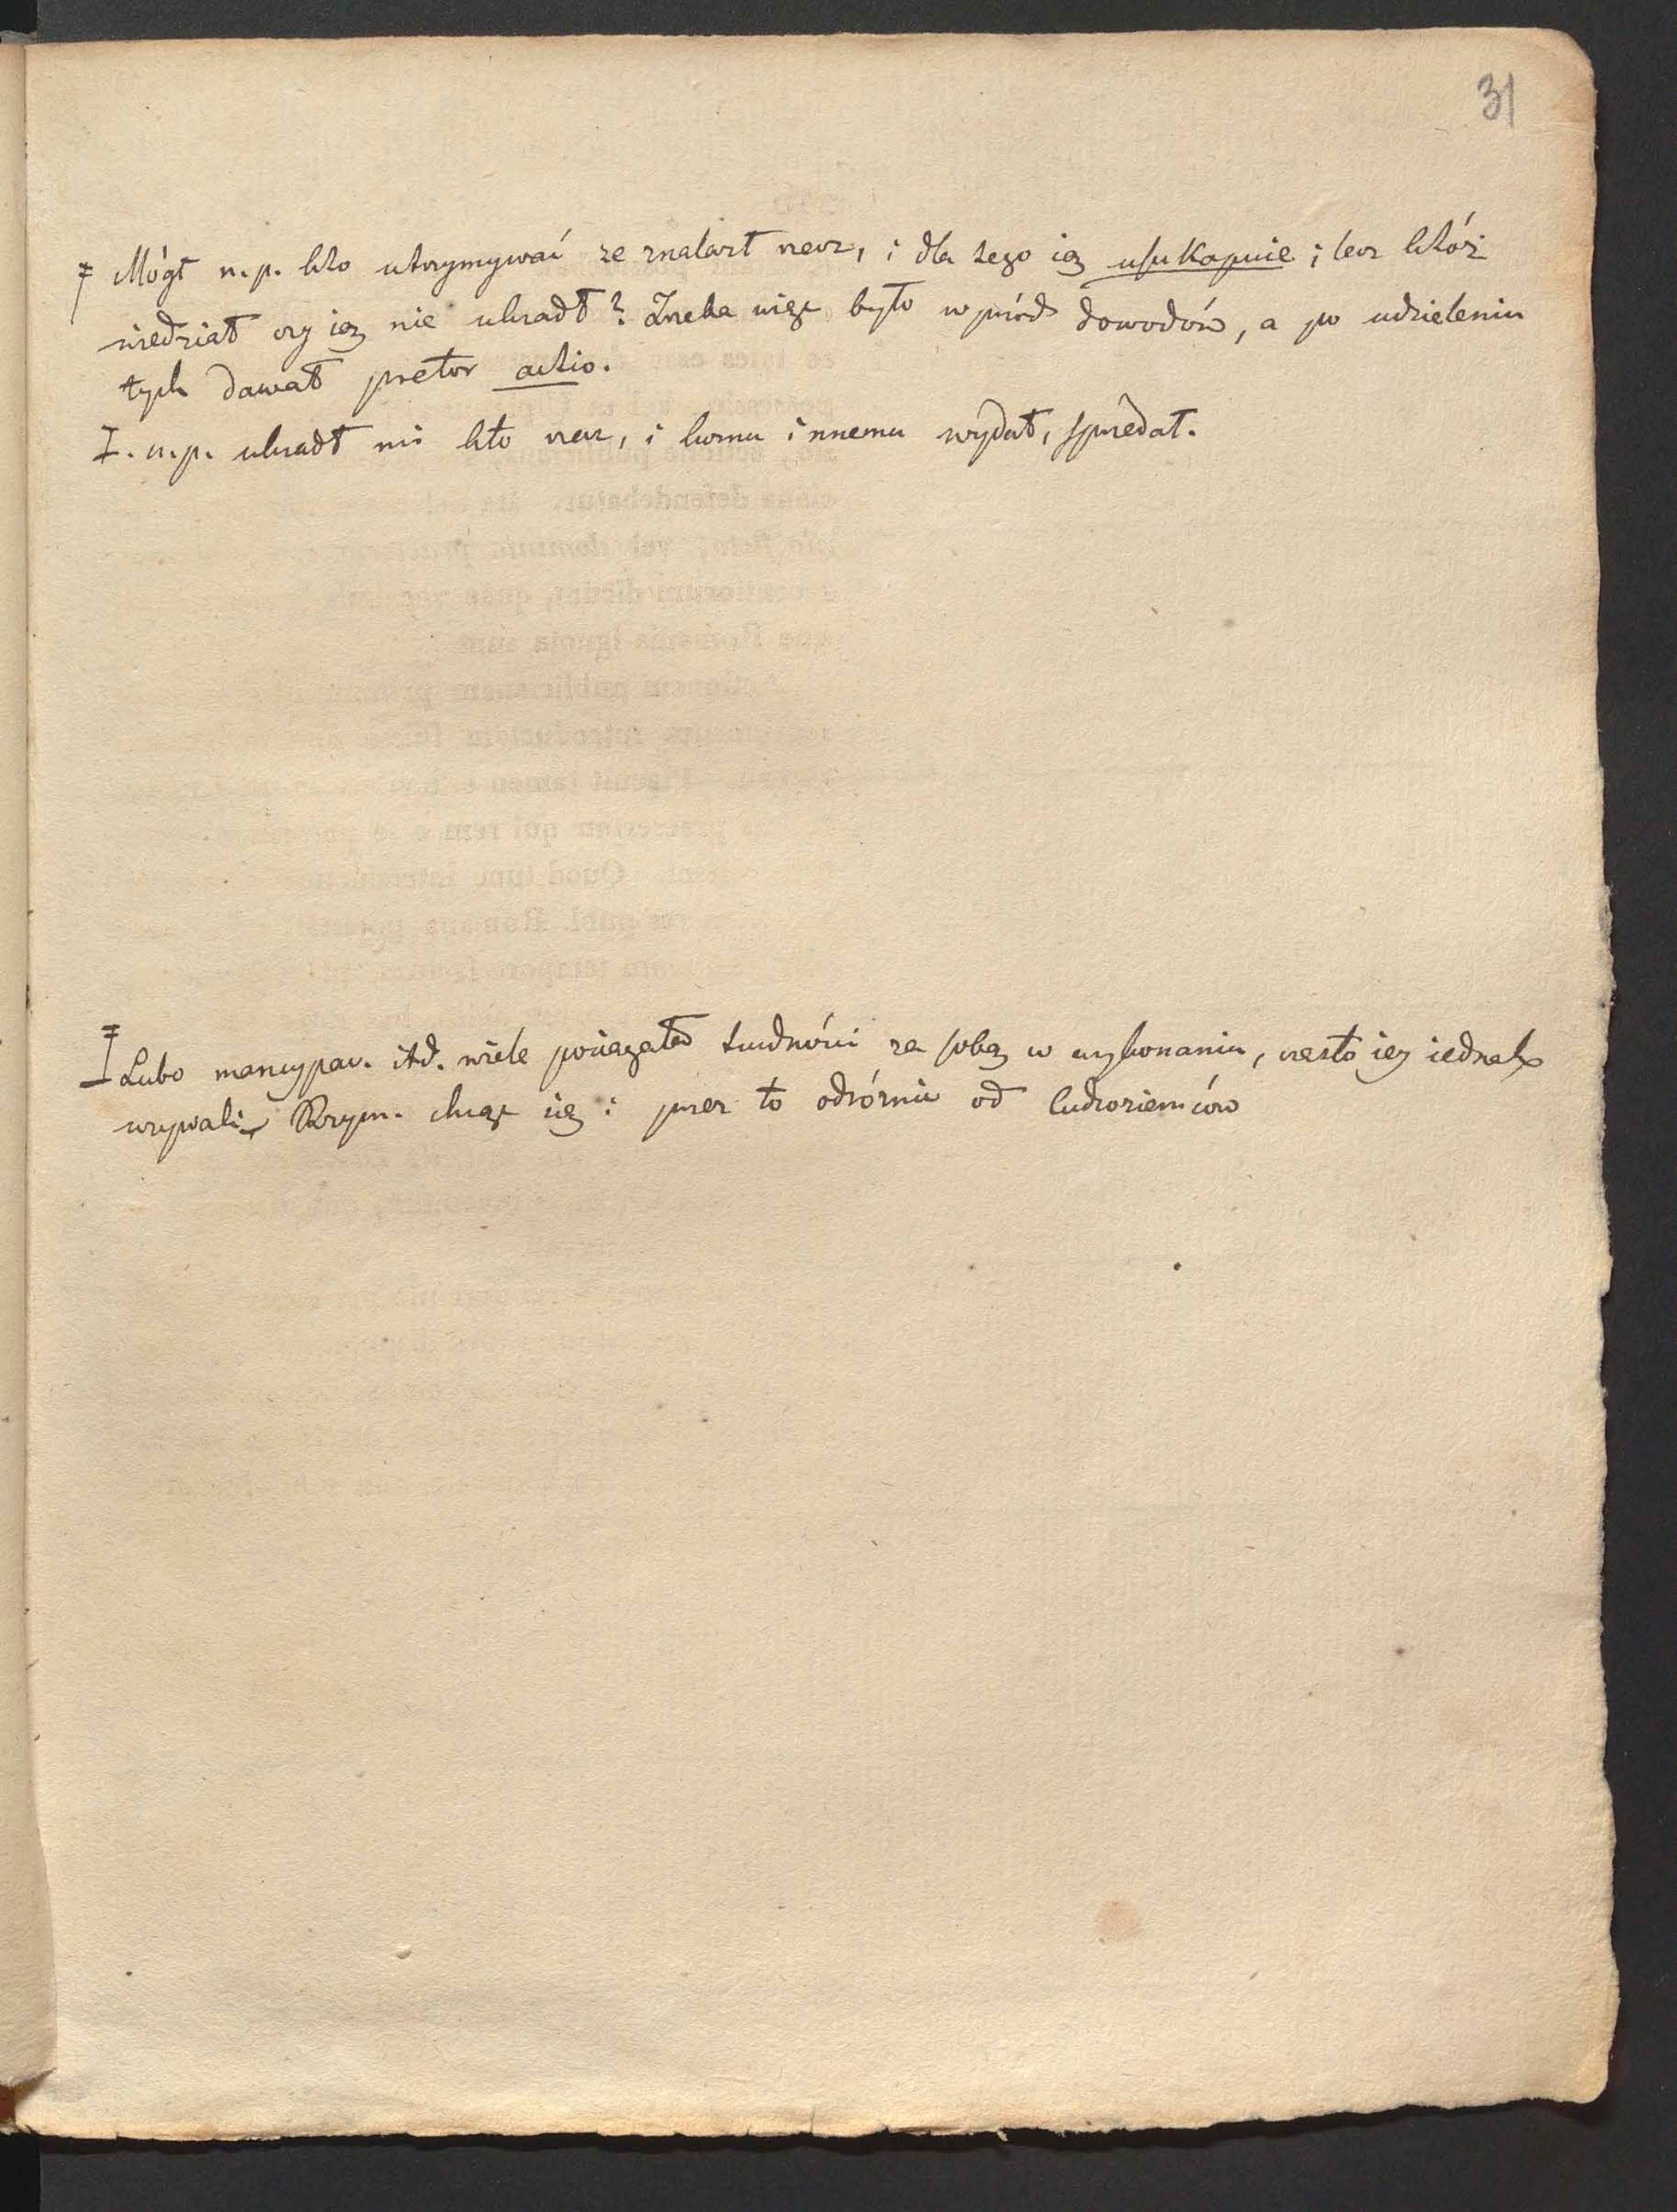 31
Mógł n. p. kto utrzymywać że znalazł rzecz, i dla tego ię usukapuie; lecz któż
wiedział czy ię nie ukradł? Trzeba więc było wprzód dowodów, a po udzieleniu
tych dawał pretor actio.
I. n. p. ukradł mi kto rzecz, i komu innemu wydał, sprzedał.
Lubo mancypac. itd. wiele pociągała trudności za sobą w wykonaniu, często ię iednak
używali Rzym. chcąc się i przez to odróżnić od cudzoziemców